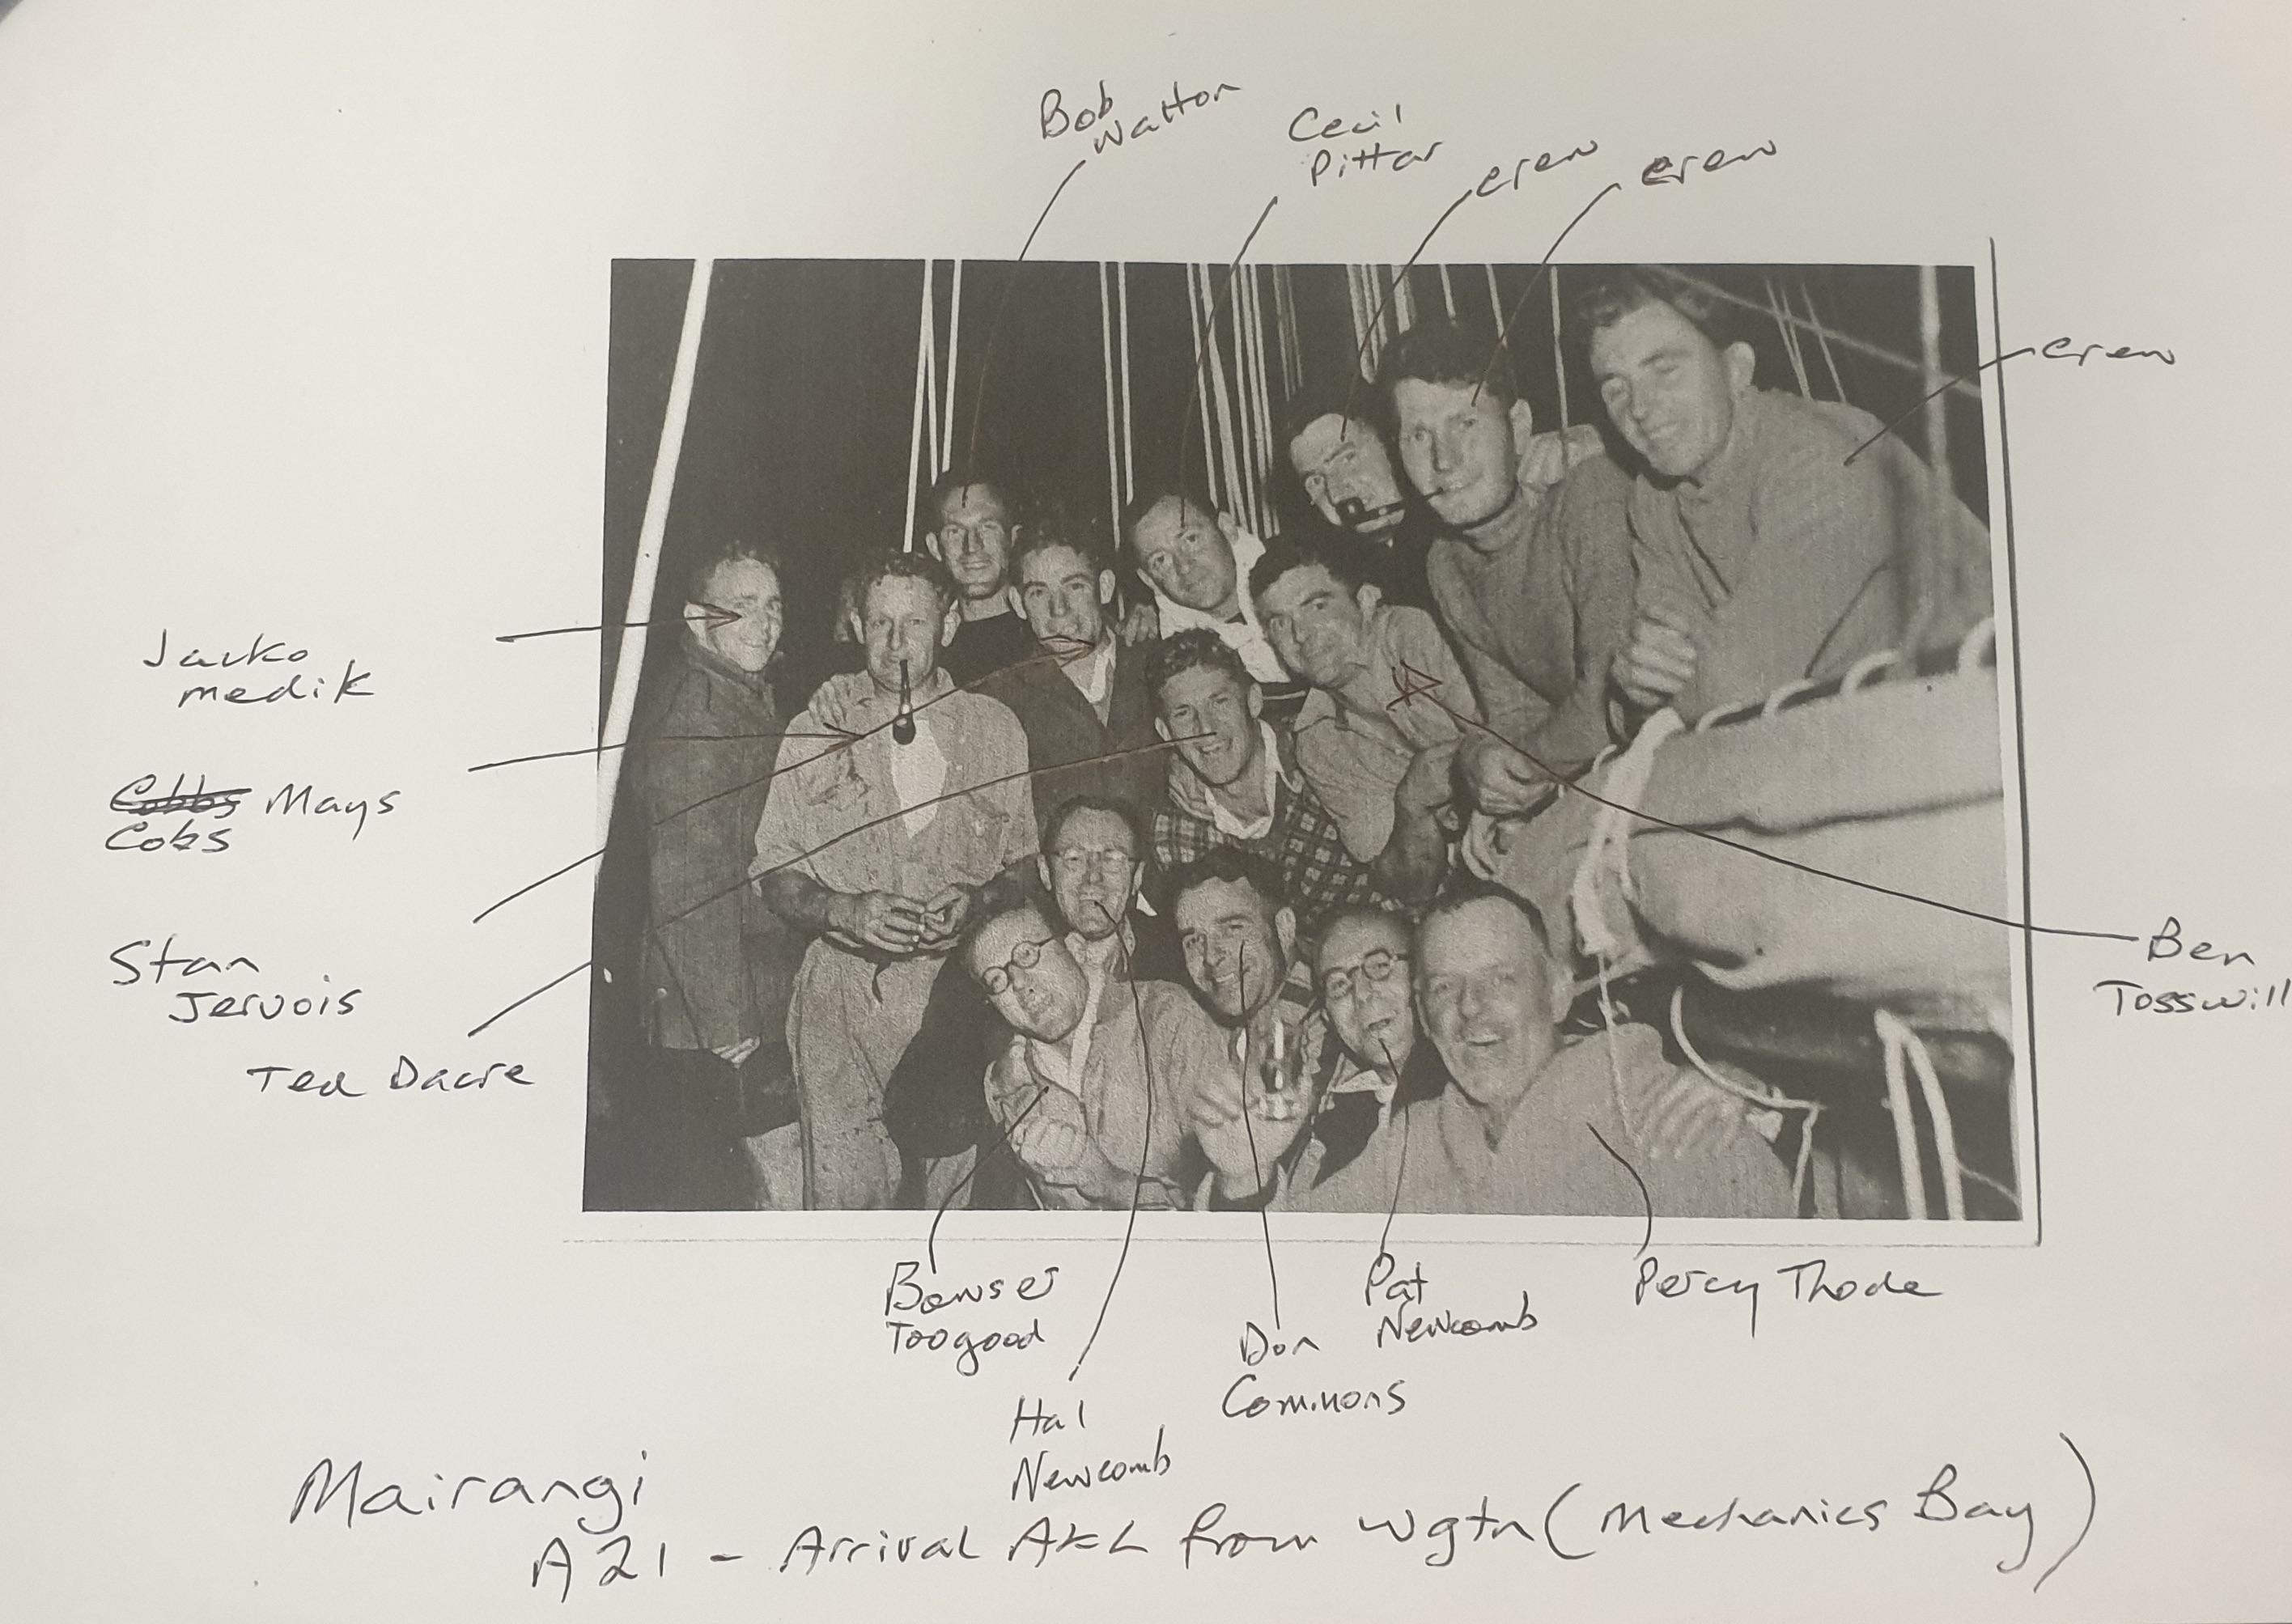 Bob
Watton
Cecil
Pittar
crew
crew
crew
Jacko
medik
Cobbs Mays
Cobs
Stan
Jervois
Ted Dacre
Ben
Tosswill
Bowser
Toogood
Hal
Newcomb
Don
Commons
Pat
Newcomb
Percy Thode
Mairangi
A21 - Arrival AKL from Wgtn (Mechanics Bay)